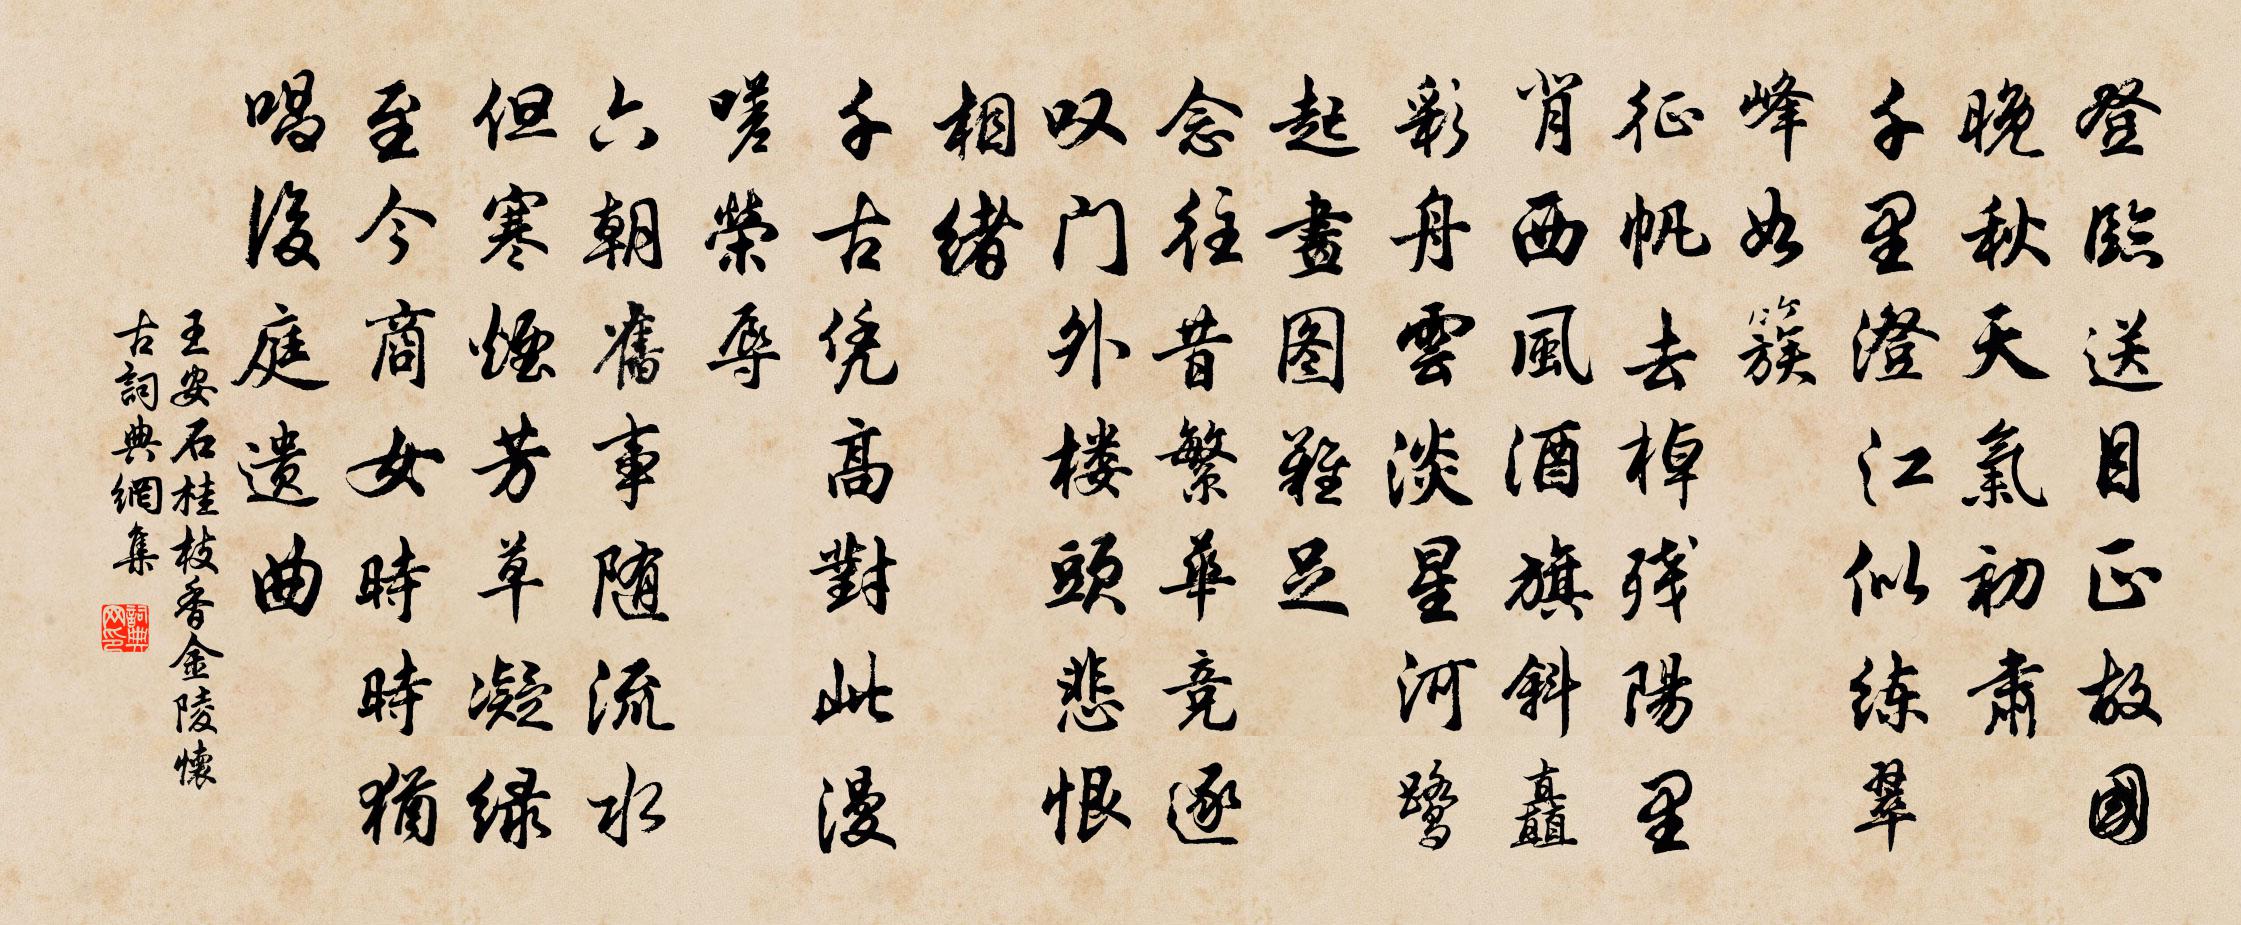 登臨送目正故國
晚秋天氣初肅
千里澄江似练翠
峰如簇
征帆去棹残陽里
肖西風酒旗斜矗
彩舟雲淡星河鹭
起畫图難足
念往昔繁華竞逐
叹门外楼頭悲恨
相绪
千古凭高對此漫
嗟榮辱
六朝舊事随流水
但寒煙芳草凝绿
至今商女時時猶
唱後庭遗曲
王安石桂枝香金陵懷
古詞典網集
詞典
网印